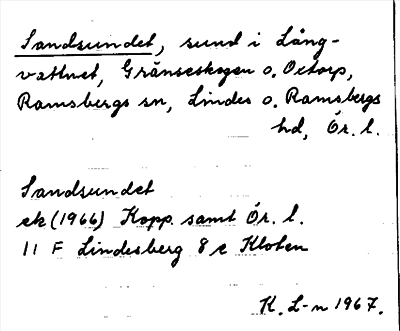 Sandsundet, sund i Lång-
vattnet, Gränsskogen o. Oxtorp,
Ramsbergs sn, Lindes o. Ramsbergs
hd, Ör. l.
Sandsundet
ek (1966) Kopp. samt Ör. l.
11 F Lindesberg 8 e Kloten
K. L-n 1967.